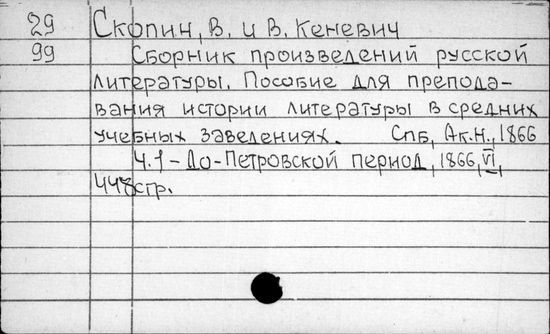 29 Скопин, В. и В. Кеневич
99 Сборник произведений русской
литературы. Пособие для препода-
вания истории литературы в средних
учебных заведениях. СПб, Ак.Н., 1866
Ч.1 - До-Петровской период, 1866, VI,
448 стр.